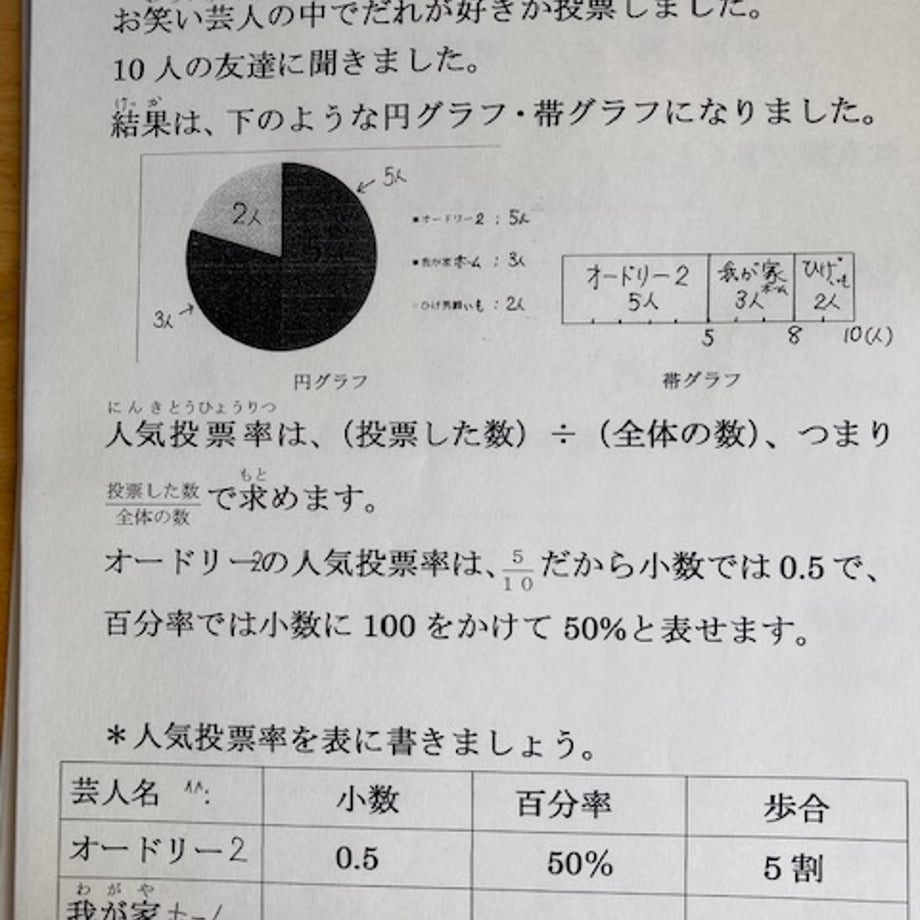 お笑い芸人の中でだれが好きか投票しました。
10人の友達に聞きました。
けっか
結果は、下のような円グラフ・帯グラフになりました。
5人
2人
3人
■オードリー2：5人
■我が家ホーム：3人
ひげ男爵いも：2人
オードリー2 我が家ホーム ひげいも
5人 3人 2人
5 8 10(人)
円グラフ 帯グラフ
にんきとうひょうりつ
人気投票率は、（投票した数）÷（全体の数）、つまり
もと
投票した数/全体の数で求めます。
オードリー2の人気投票率は、5/10だから小数では0.5で、
百分率では小数に100をかけて50%と表せます。
＊人気投票率を表に書きましょう。
芸人名 小数 百分率 歩合
オードリー2 0.5 50% 5割
わがや
我が家